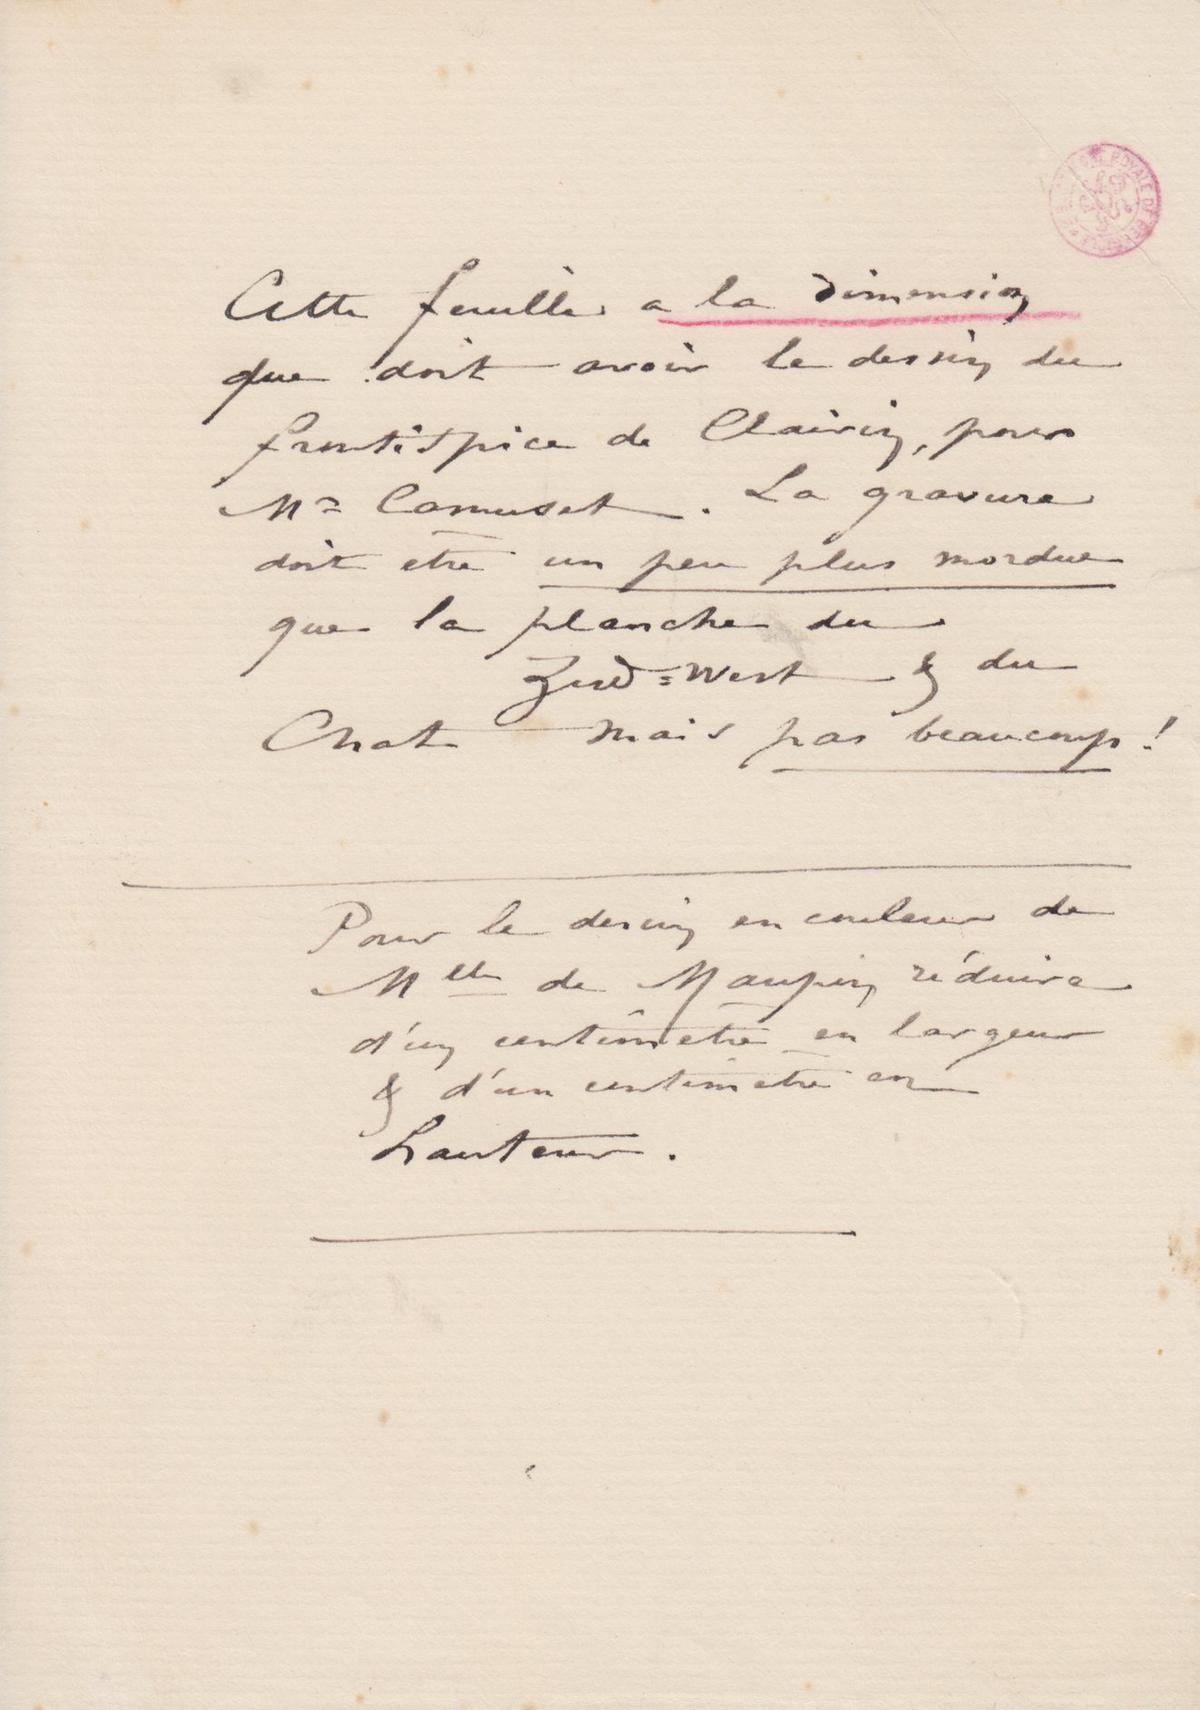 Cette feuille a la dimension
que doit avoir le dessin du
frontispice de Clairin, pour
Mr Camuset. La gravure
doit etre un peu plus mordue
que la planche du
Zud=West & du
Chat mais pas beaucoup !
Pour le dessin en couleur de
Mlle de Maupin, réduire
d'un centimètre en largeur
& d'un centimetre en
hauteur.